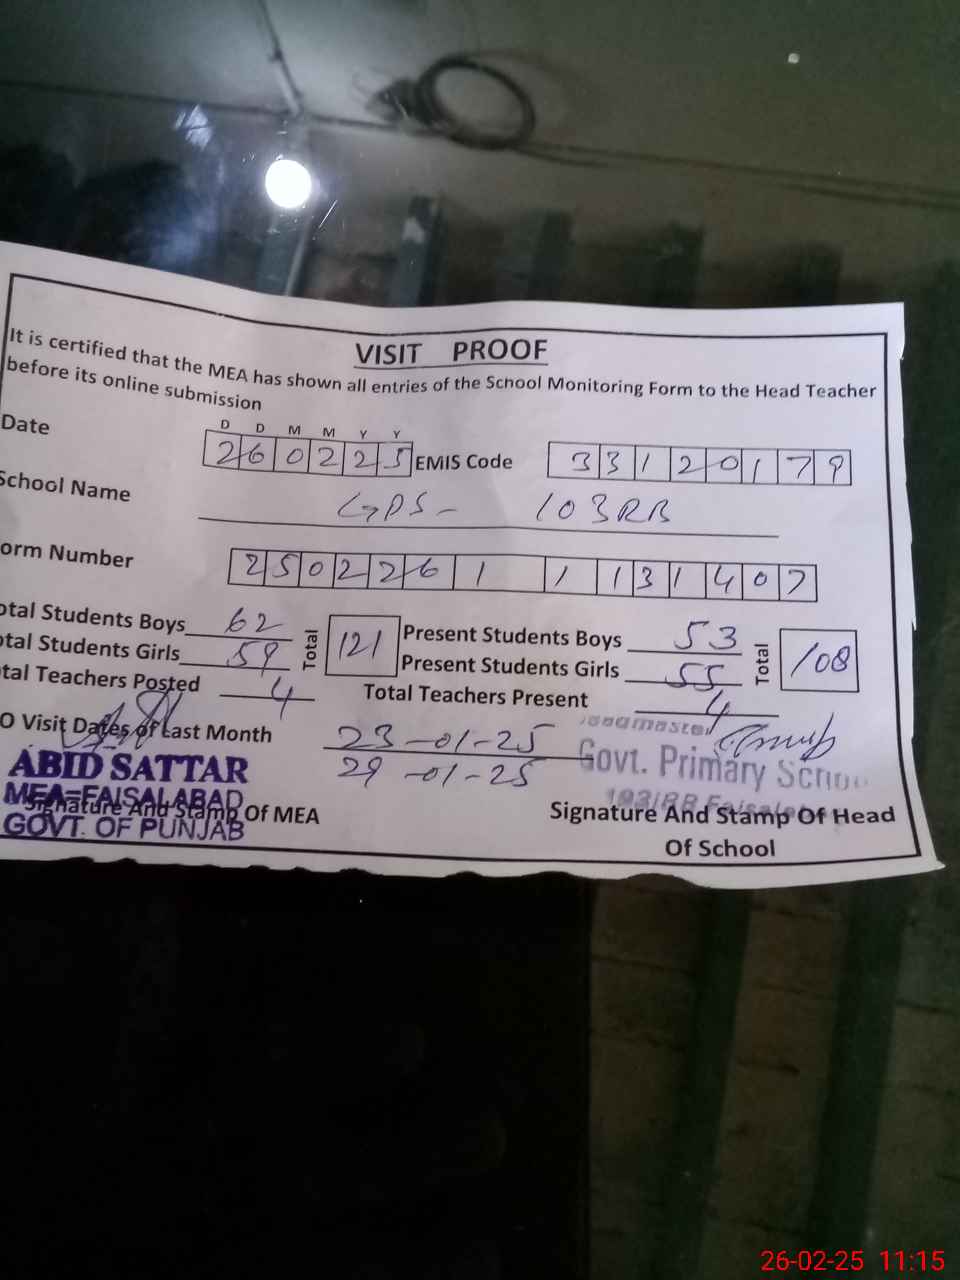 VISIT PROOF
It is certified that the MEA has shown all entries of the School Monitoring Form to the Head Teacher
before its online submission
D D M M Y Y
Date 260225 EMIS Code 33120179
School Name GPS- 103RB
orm Number 250226 1 1 131407
otal Students Boys 62 Total 121 Present Students Boys 53 Total 108
otal Students Girls 59 Present Students Girls 55
tal Teachers Posted 4 Total Teachers Present 4
O Visit Dates of Last Month 23-01-25
29-01-25
ABID SATTAR
MEA=FAISALABAD
GOVT. OF PUNJAB
Signature And Stamp Of MEA
Govt. Primary
Signature And Stamp Of Head
Of School
26-02-25 11:15